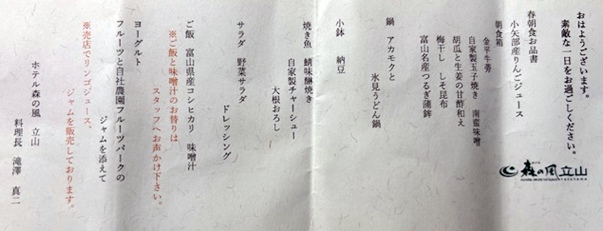 おはようございます。
素敵な一日をお過ごしください。
春朝食お品書
小矢部産りんごジュース
朝食箱
金平牛蒡
自家製玉子焼き　南蛮味噌
胡瓜と生姜の甘酢和え
梅干し　しそ昆布
富山名産つるぎ蒲鉾
鍋　アカモクと
氷見うどん鍋
小鉢　納豆
焼き魚　鯖味醂焼き
自家製チャーシュー
大根おろし
サラダ　野菜サラダ
ドレッシング
ご飯　富山県産コシヒカリ　味噌汁
※ご飯と味噌汁のお替りは
スタッフへお声かけ下さい。
ヨーグルト
フルーツと自社農園フルーツパークの
ジャムを添えて
※売店でリンゴジュース、
ジャムを販売しております。
ホテル森の風　立山
料理長　滝澤　真二
森の風立山